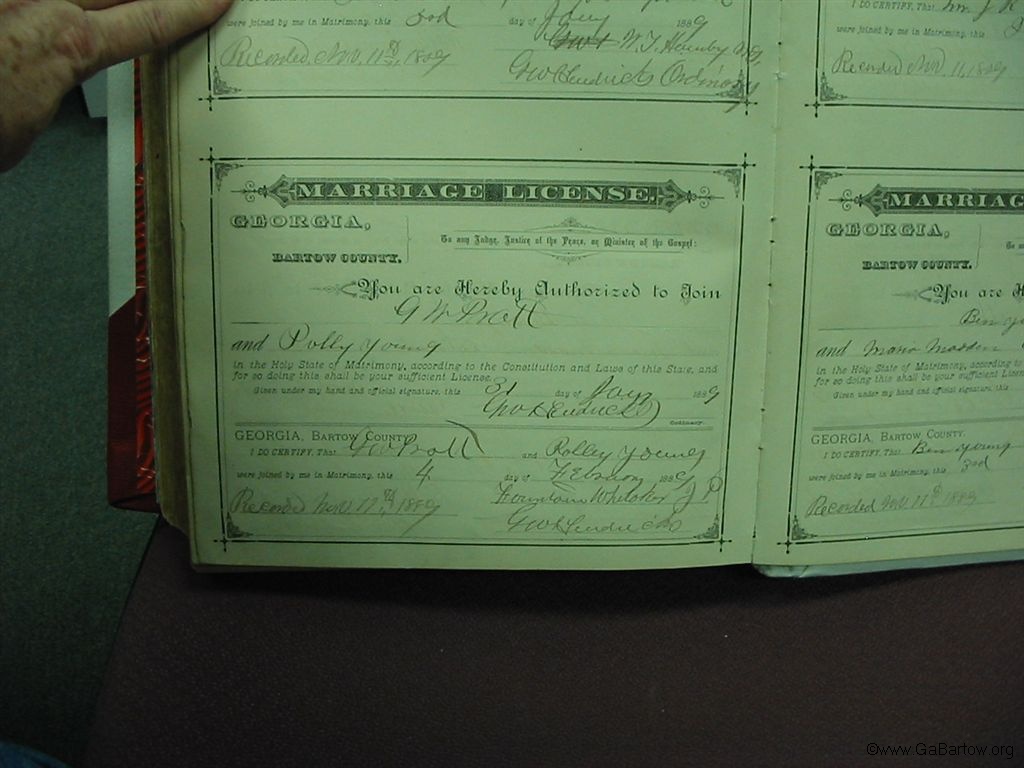 were joined by me in Matrimony, this 3rd day of Jany 1889
W. T. Hamby
Recorded, Nov. 11th, 1889
Geo Hendricks Ordinary
MARRIAGE LICENSE.
GEORGIA,
BARTOW COUNTY.
To any Judge, Justice of the Peace, or Minister of the Gospel:
You are Hereby Authorized to Join
G W Pratt
and Polly Young
in the Holy State of Matrimony, according to the Constitution and Laws of this State, and
for so doing this shall be your sufficient License.
Given under my hand and official signature, this 31 day of Jany 1889
Geo Hendricks
Ordinary.
GEORGIA, BARTOW COUNTY.
I DO CERTIFY, That G W Pratt and Polley Young
were joined by me in Matrimony, this 4 day of 1889
Fountain Whitaker J P
Recorded Nov. 11th, 1889
Geo Hendricks
I DO CERTIFY, That Wm. J K
were joined by me in Matrimony, this
Recorded Nov. 11, 1889
MARRIAG
GEORGIA,
BARTOW COUNTY.
To
You are H
Ben Yo
and Maria Madden
in the Holy State of Matrimony, according
for so doing this shall be your sufficient License
Given under my hand and official signature, this
GEORGIA, BARTOW COUNTY.
I DO CERTIFY, That Ben Young
were joined by me in Matrimony, this 3rd
Recorded Nov. 11th 1889
©www.GaBartow.org